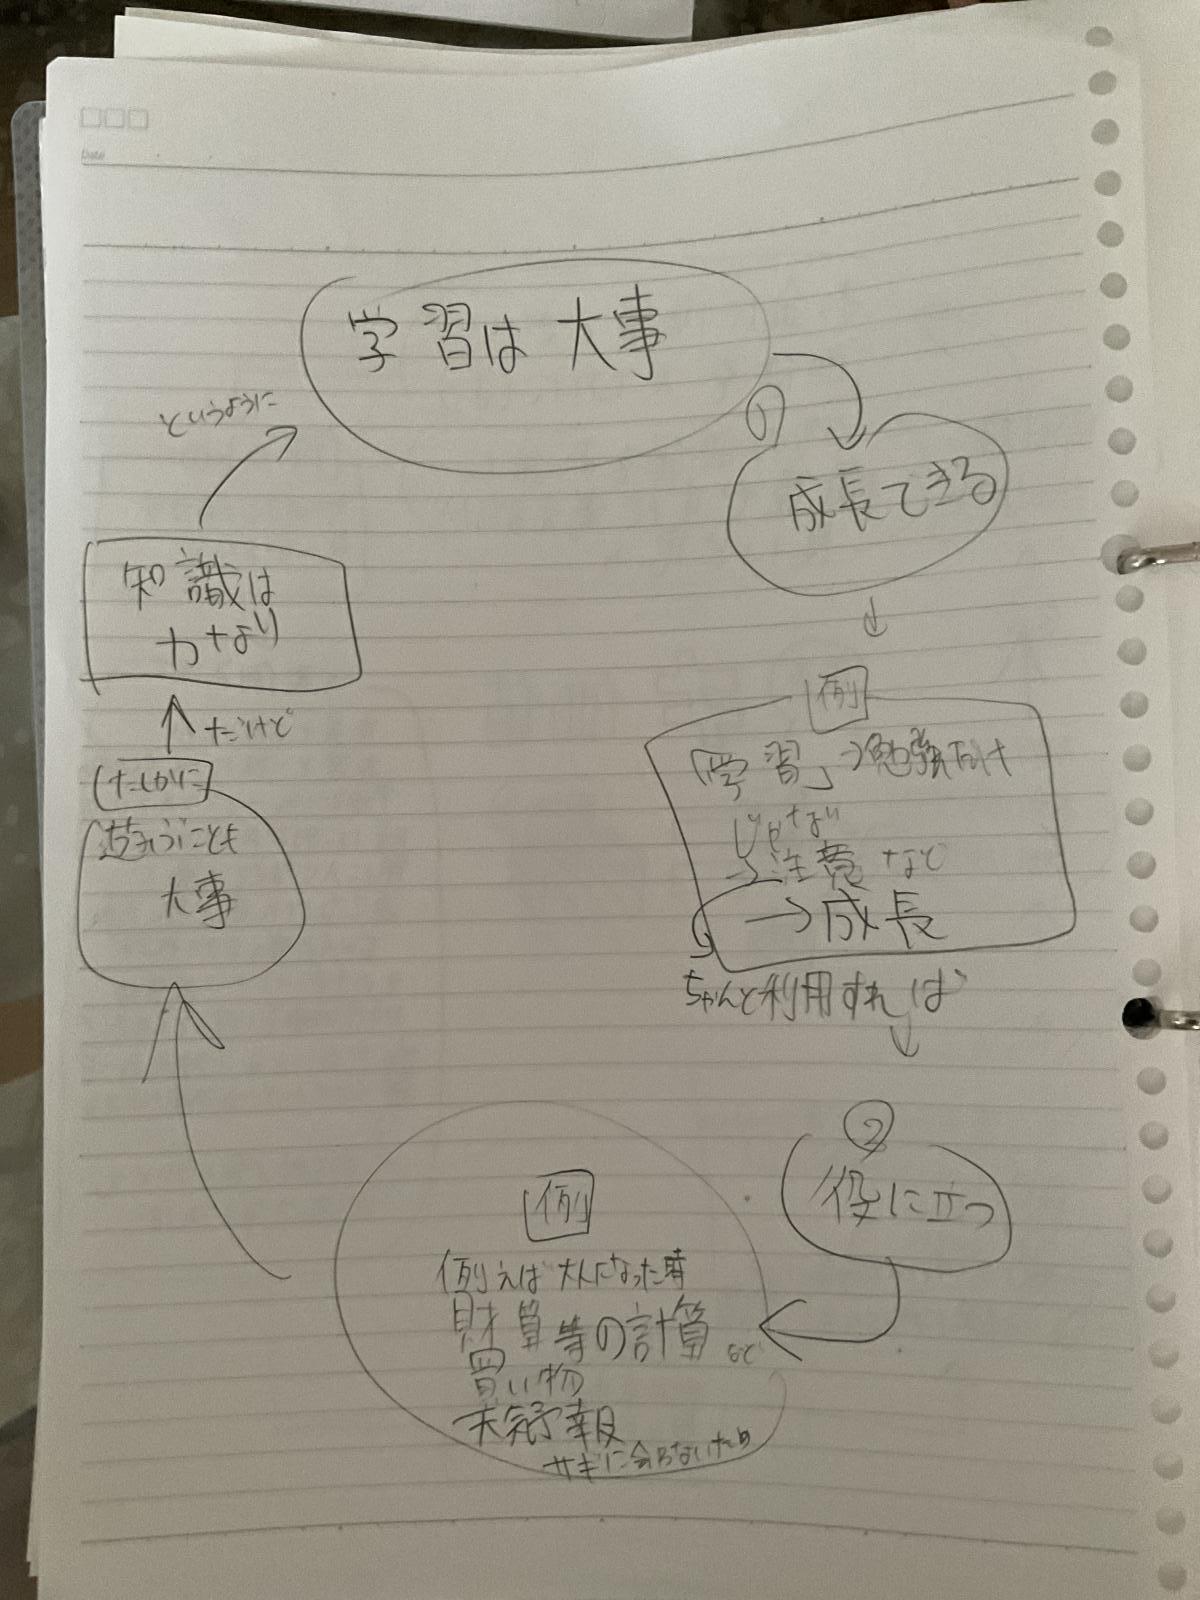 Date
学習は 大事
というように
①
成長できる
知識は
力なり
だけど
たしかに
遊ぶことも
大事
例
「学習」→勉強だけ
じゃない
→注意など
→成長
ちゃんと利用すれば
②
役に立つ
例
例えば大人になった時
財算等の計算 など
買い物
天気予報
サギに会わないため